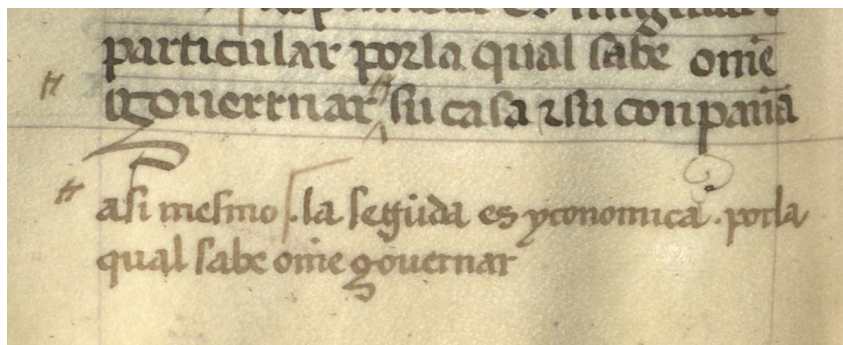 particular por la qual sabe ome
gouernar su casa ⁊ su conpaña
asi mesmo la segũda es yconomica . por la
qual sabe ome gouernar